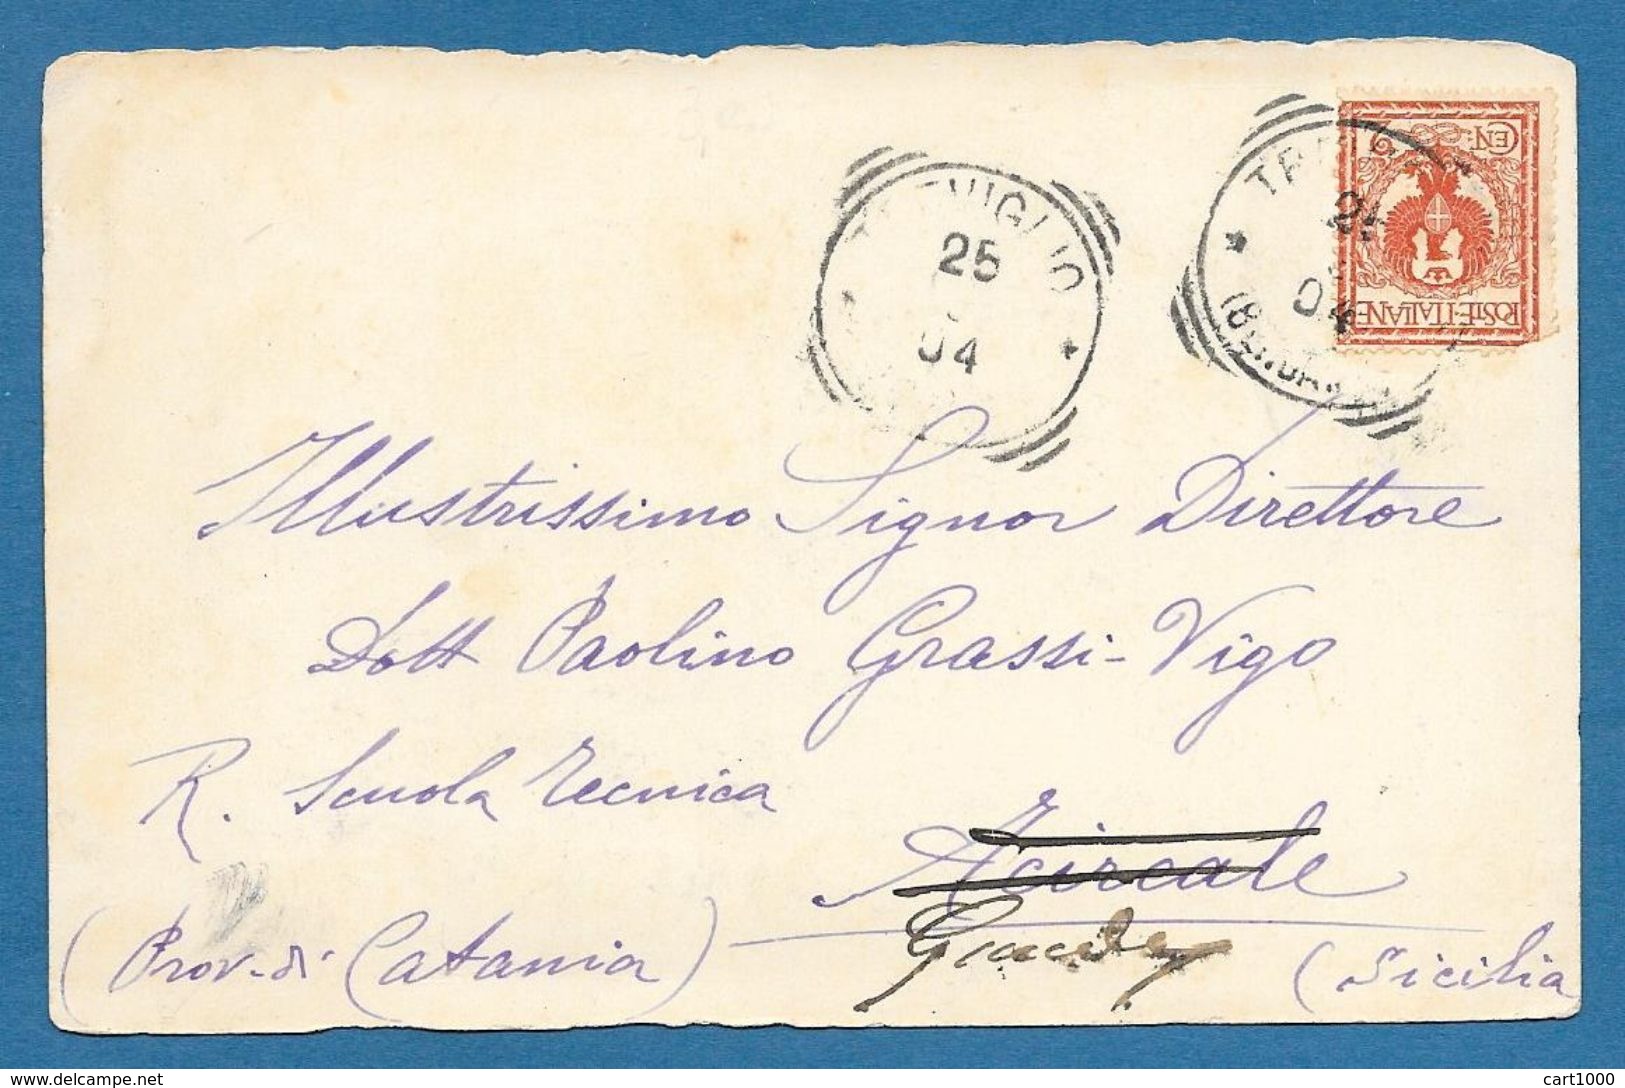 TREVIGLIO
25
04
(BERGAMO)
POSTE·ITALIANE
CEN:
Illustrissimo Signor Direttore
Dott Paolino Grassi-Vigo
R. Scuola Tecnica
Acireale
(Prov. di Catania)
(Sicilia
delcampe.net
cart1000